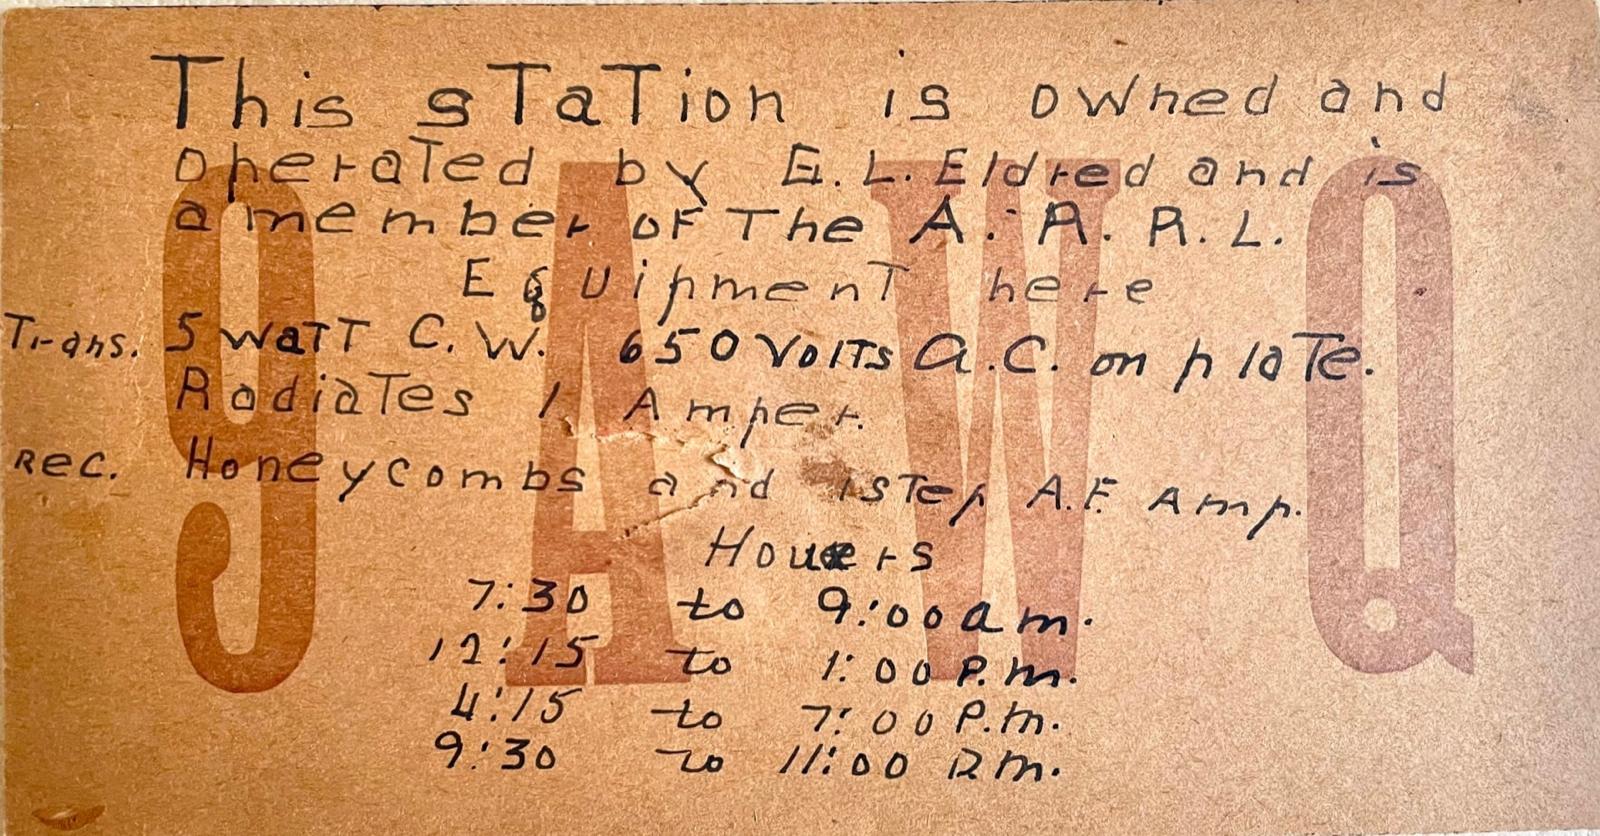 9AWQ
This sTaTion is owned and
operaTed by E.L. Eldred and is
a member oF The A. R. R. L.
EqUipmenT here
Trans. 5 waTT C. W. 650 VolTs a.C. on plaTe.
RadiaTes 1 Amper.
Rec. Honeycombs and 1 sTep A.F. Amp.
Hours
7:30 to 9:00 a m.
12:15 to 1:00 P.m.
4:15 to 7:00 P.m.
9:30 to 11:00 P.m.